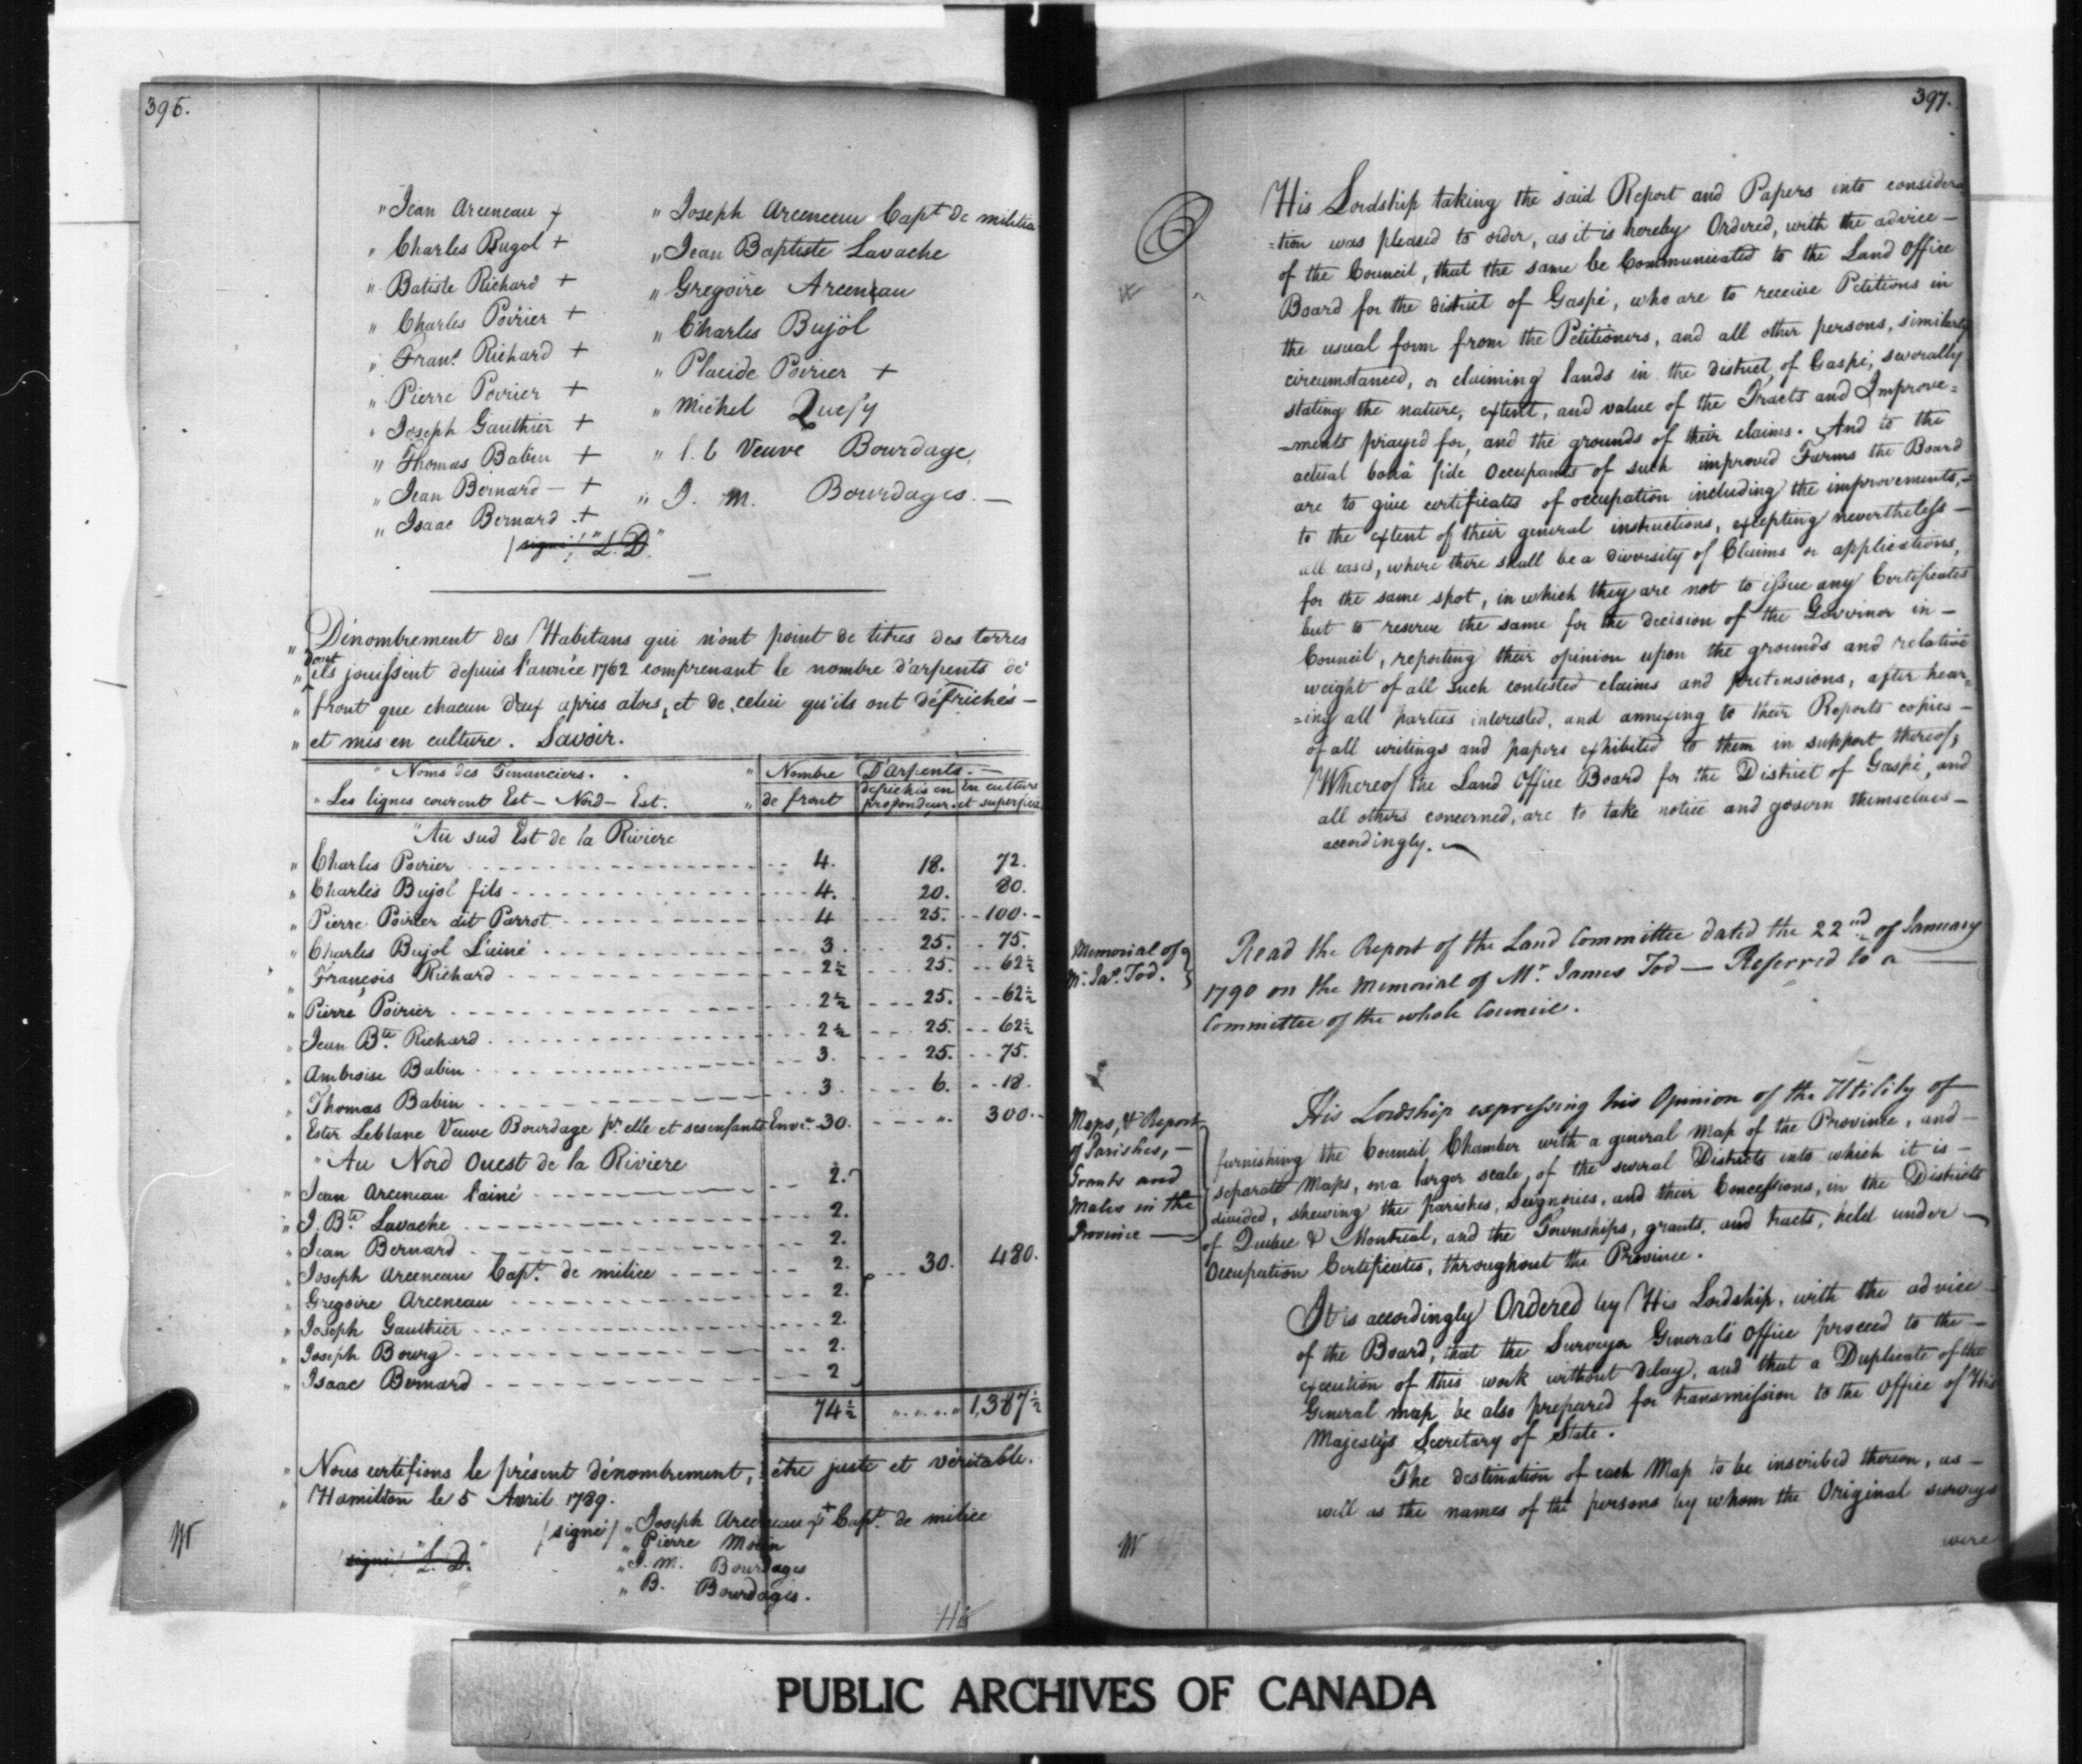 396.
" Jean Arceneau +
" Charles Bugol +
" Batiste Richard +
" Charles Poirier +
" Frans. Richard +
" Pierre Poirier +
" Joseph Gauthier +
" Thomas Babin +
" Jean Bernard - +
" Isaac Bernard . +
/signé/ "L. D."
" Joseph Arceneau Capt. de milice
" Jean Baptiste Lavache
" Gregoire Arceneau
" Charles Bujol
" Placide Poirier +
" Michel Quesy
" Veuve Bourdage,
" J. M. Bourdages. —
" Dénombrement des Habitans qui n'ont point de titres des terres
" dont ils jouissent depuis l'année 1762 comprenant le nombre d'arpents de
" front que chacun d'eux apris alors, et de celui qu'ils ont défrichés —
" et mis en culture. Savoir.
" Noms des Tenanciers. " Nombre D'arpents. —
" Les lignes courent Est - Nord - Est. " de front defrichés en profondeur. En culture et superficie
" Au sud Est de la Riviere
" Charles Poirier 4. 18. 72.
" Charles Bujol fils 4. 20. 80.
" Pierre Poirier dit Parrot 4 25. 100.
" Charles Bujol L'ainé 3. 25. 75.
" François Richard 2½ 25. 62½
" Pierre Poirier 2½ 25. 62½
" Jean Bte. Richard 2½ 25. 62½
" Ambroise Babin 3. 25. 75.
" Thomas Babin 3. 6. 18.
" Ester Leblanc Veuve Bourdage pr. elle et ses enfants Envn. 30. " 300.
" Au Nord Ouest de la Riviere
" Jean Arceneau l'ainé 2.
" J. Bte. Lavache 2.
" Jean Bernard 2.
" Joseph Arceneau Capt. de milice 2. 30. 480.
" Gregoire Arceneau 2.
" Joseph Gauthier 2.
" Joseph Bourg 2.
" Isaac Bernard 2
74½ " 1,387½
" Nous certifions le présent dénombrement, être juste et véritable.
" Hamilton le 5 Avril 1789.
/signé/ " Joseph Arceneau + Capt. de milice
" Pierre Morin
" J. M. Bourdages
" B. Bourdages.
signé "L. D."
His
397.
His Lordship taking the said Report and Papers into considera
=tion was pleased to order, as it is hereby Ordered, with the advice —
of the Council, that the same be Communicated to the Land Office
Board for the district of Gaspé, who are to receive Petitions in
the usual form from the Petitioners, and all other persons, similarly
circumstanced, or claiming lands in the district of Gaspé, severally
stating the nature, extent, and value of the Tracts and Improve=
=ments prayed for, and the grounds of their claims. And to the
actual bonâ fide Occupants of such improved Farms the Board
are to give certificates of occupation including the improvements, —
to the extent of their general instructions, excepting nevertheless —
all cases, where there shall be a diversity of Claims or applications,
for the same spot, in which they are not to issue any Certificates
but to reserve the same for the decision of the Governor in —
Council, reporting their opinion upon the grounds and relative
weight of all such contested claims and pretensions, after hear=
=ing all parties interested, and annexing to their Reports copies —
of all writings and papers exhibited to them in support thereof;
Whereof the Land Office Board for the District of Gaspé, and
all others concerned, are to take notice and govern themselves —
accordingly. —
Memorial of
Mr. Jas. Tod.
Read the Report of the Land Committee dated the 22nd of January
1790 on the Memorial of Mr. James Tod — Referred to a —
Committee of the whole Council.
Maps, & Report
of Parishes, —
Grants and
in the
Province —
His Lordship expressing his Opinion of the Utility of
furnishing the Council Chamber with a general Map of the Province, and —
separate Maps, on a larger scale, of the several Districts into which it is —
divided, shewing the parishes, Seignories, and their Concessions, in the Districts
of Quebec & Montreal, and the Townships, grants, and tracts, held under —
Occupation Certificates, throughout the Province.
It is accordingly Ordered by His Lordship, with the advice
of the Board, that the Surveyor General's Office proceed to the —
execution of this work without delay, and that a Duplicate of the
General map be also prepared for transmission to the Office of His
Majesty's Secretary of State.
The destination of each Map to be inscribed thereon, as —
well as the names of the persons by whom the Original surveys
were
PUBLIC ARCHIVES OF CANADA